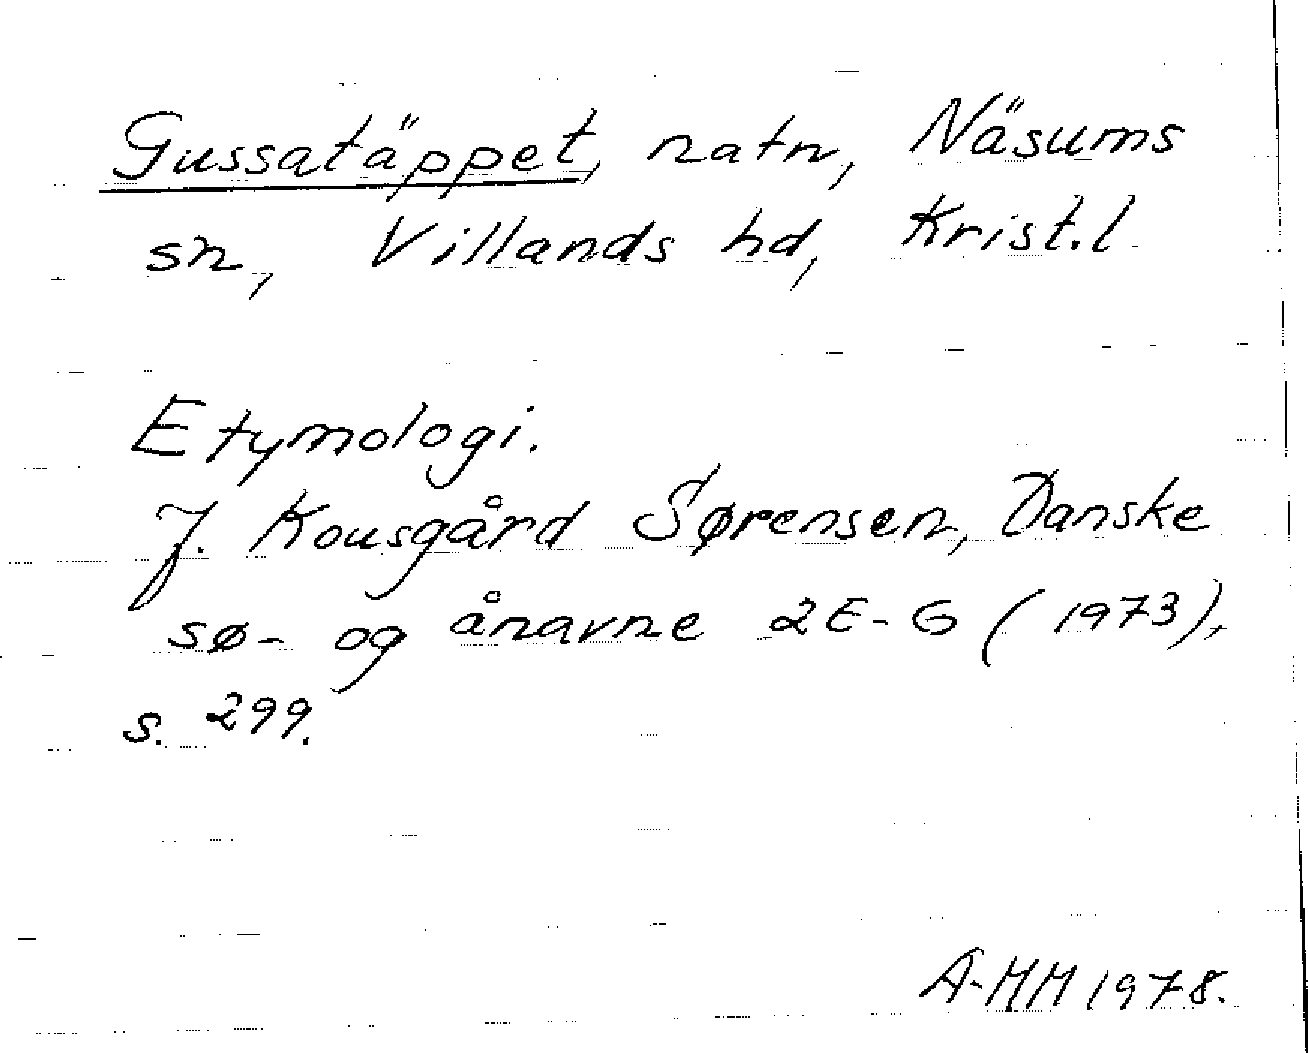 Gussatäppet, natn, Näsums
sn, Villands hd, Krist.l.
Etymologi.
J. Kousgård Sørensen, Danske
sø- og ånavne 2E-G (1973),
s. 299.
A-MM 1978.